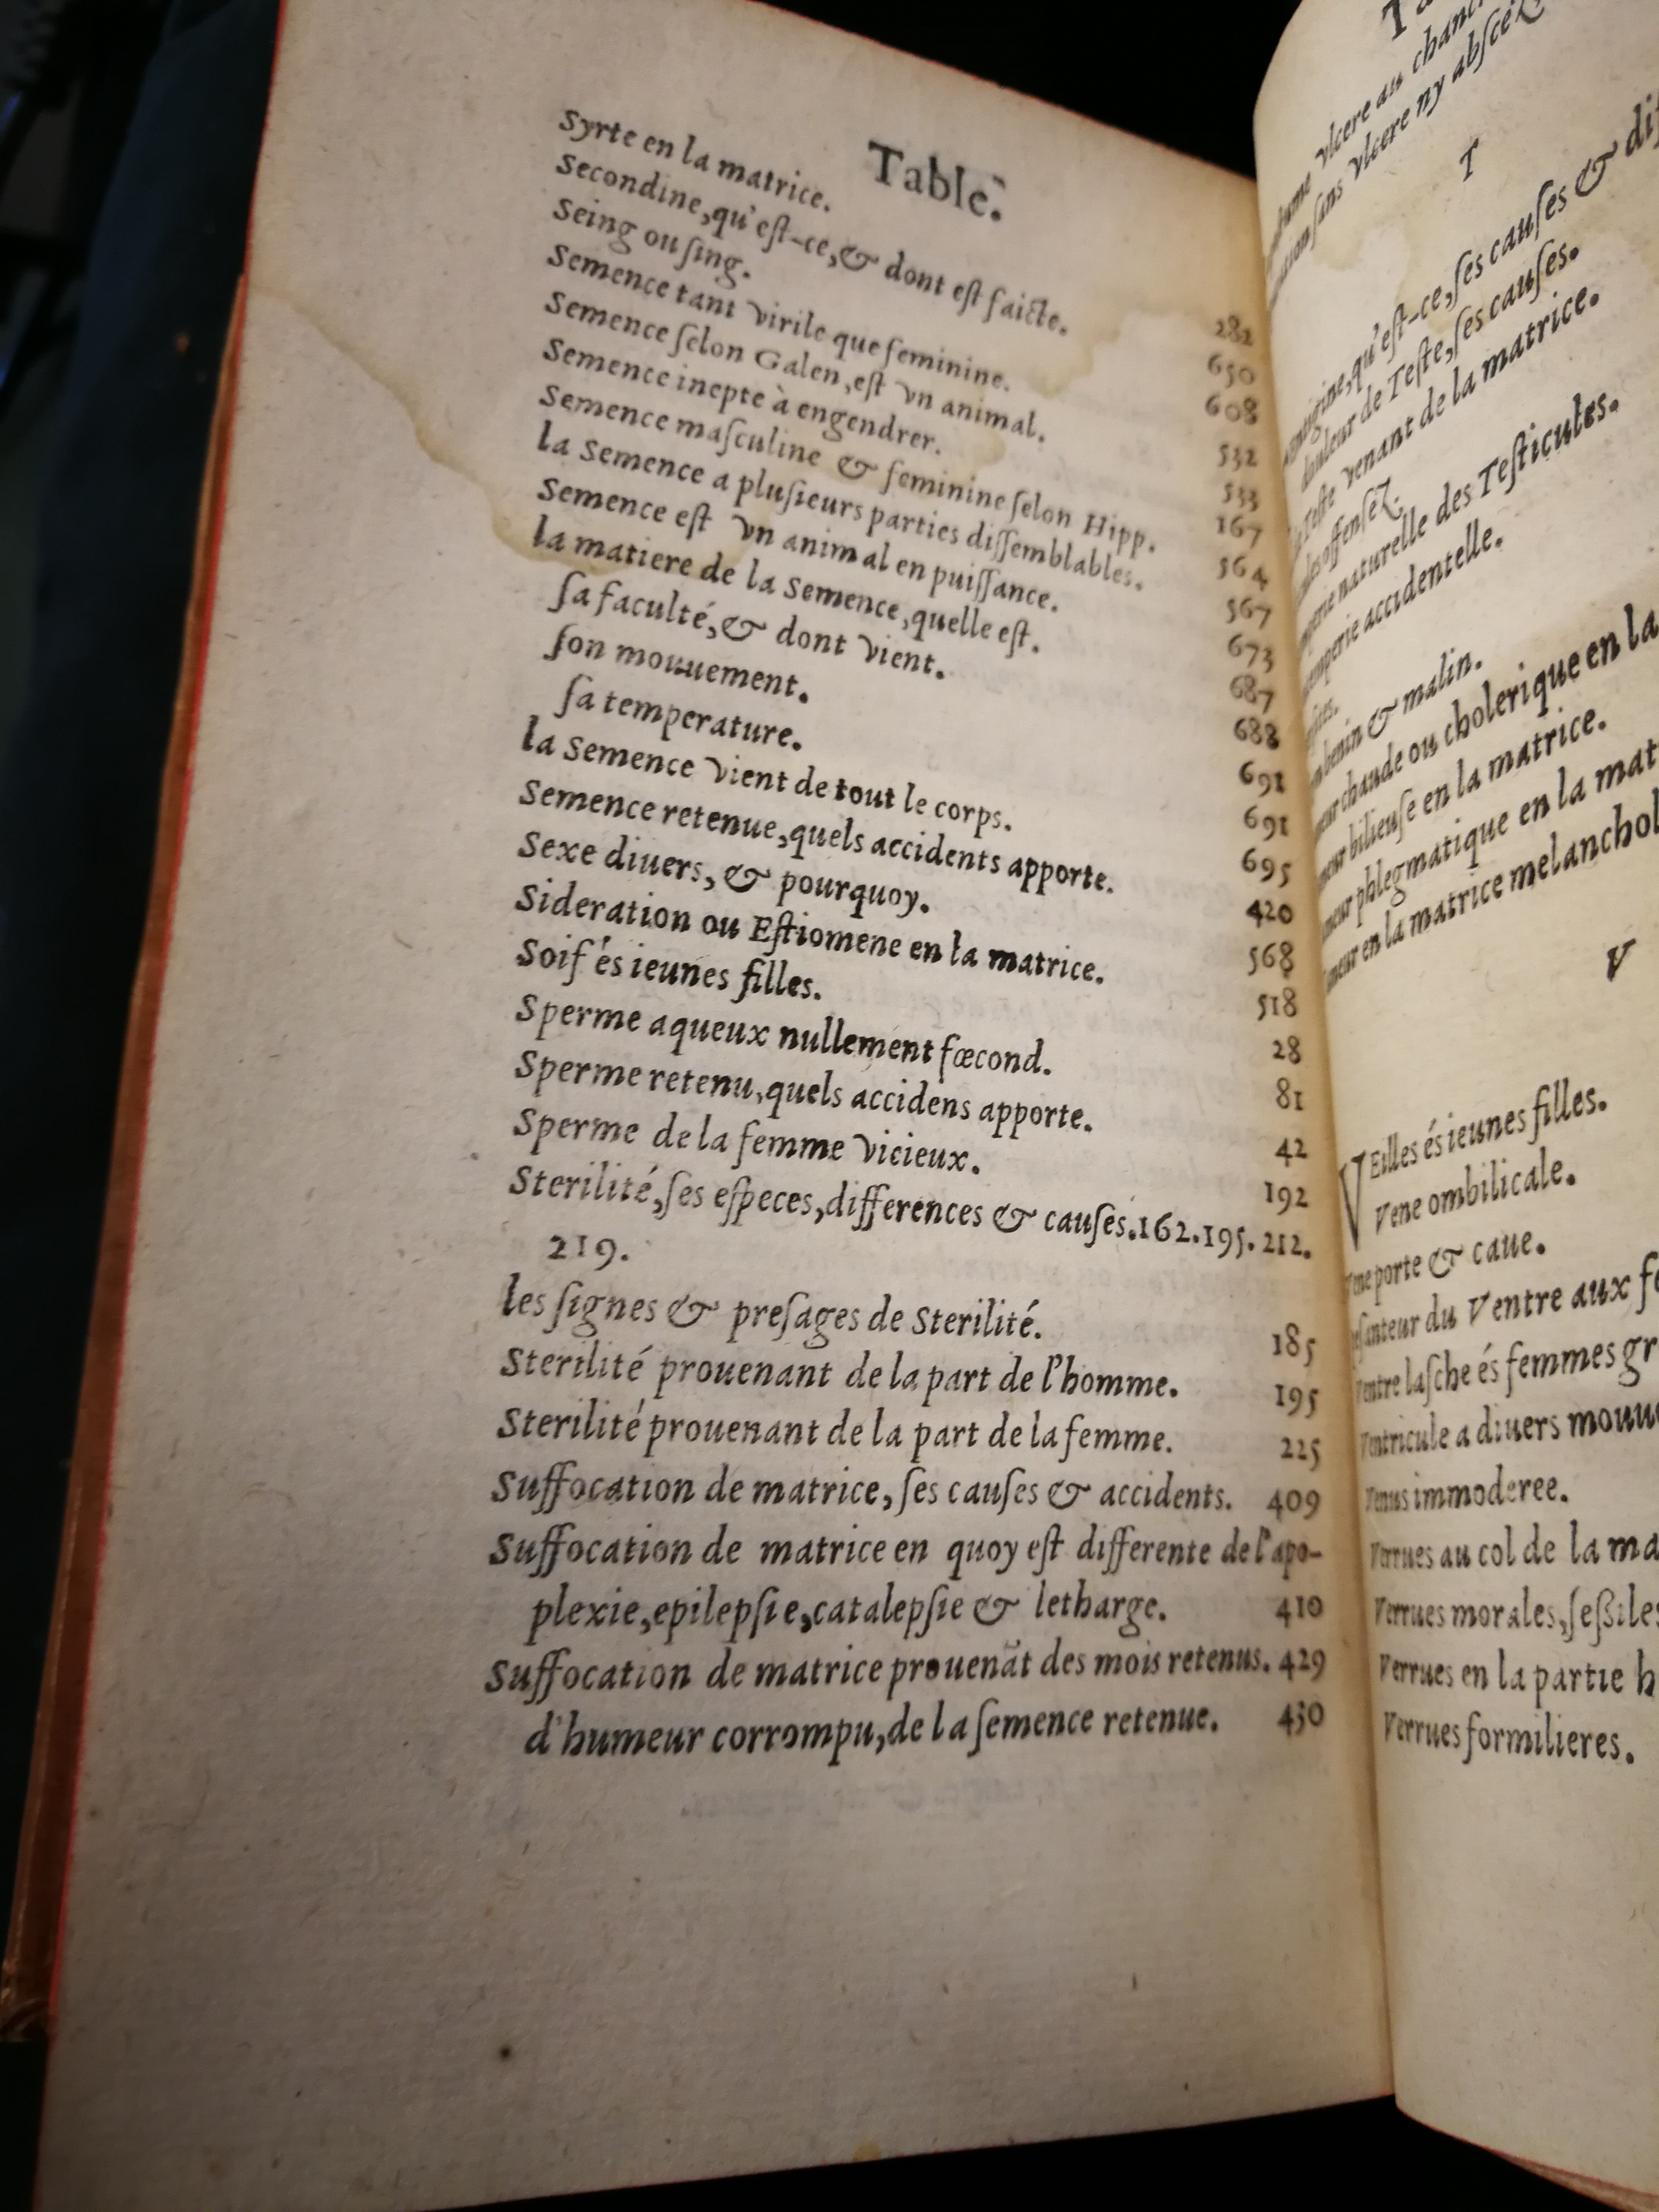 Table.
Syrte en la matrice. 282
Secondine, qu'eſt-ce, & dont eſt faicte. 650
Seing ou ſing. 608
Semence tant virile que feminine. 532
Semence ſelon Galen, eſt vn animal. 533
Semence inepte à engendrer. 167
Semence maſculine & feminine ſelon Hipp. 564
la Semence a pluſieurs parties diſſemblables. 567
Semence eſt vn animal en puiſſance. 673
la matiere de la Semence, quelle eſt. 687
ſa faculté, & dont vient. 688
ſon mouuement. 691
ſa temperature. 691
la Semence vient de tout le corps. 695
Semence retenue, quels accidents apporte. 420
Sexe diuers, & pourquoy. 568
Sideration ou Eſtiomene en la matrice. 518
Soif és ieunes filles. 28
Sperme aqueux nullement fœcond. 81
Sperme retenu, quels accidens apporte. 42
Sperme de la femme vicieux. 192
Sterilité, ſes eſpeces, differences & cauſes. 162. 195. 212.
219.
les ſignes & preſages de Sterilité. 185
Sterilité prouenant de la part de l'homme. 195
Sterilité prouenant de la part de la femme. 225
Suffocation de matrice, ſes cauſes & accidents. 409
Suffocation de matrice en quoy eſt differente de l'apo-
plexie, epilepſie, catalepſie & letharge. 410
Suffocation de matrice prouenãt des mois retenus. 429
d'humeur corrompu, de la ſemence retenue. 430
vlcere au
ſans vlcere ny abſcez
T
qu'eſt-ce, ſes cauſes &
douleur de Teſte, ſes cauſes.
Teſte venant de la matrice.
offenſez.
naturelle des Teſticules.
accidentelle.
benin & malin.
chaude ou cholerique en la
bilieuſe en la matrice.
phlegmatique en la
en la matrice
V
VEilles és ieunes filles.
Vene ombilicale.
porte & caue.
du Ventre aux
Ventre laſche és femmes
Ventricule a diuers
Venus immoderee.
Verrues au col de la
Verrues morales,
Verrues en la partie
Verrues formilieres.